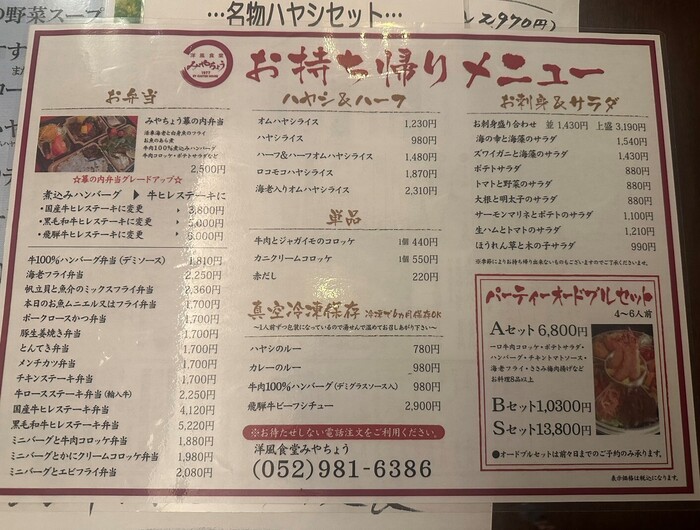 の野菜スープ
…名物ハヤシセット…
2,970円)
洋風食堂
みやちょう
1977
お持ち帰りメニュー
お弁当
みやちょう幕の内弁当
活車海老と白身魚のフライ
お魚のあら煮
牛肉100%煮込みハンバーグ
牛肉コロッケ・ポテトサラダなど
2,500円
☆幕の内弁当グレードアップ☆
煮込みハンバーグ ▶ 牛ヒレステーキに
・国産牛ヒレステーキに変更 ▶ 3,800円
・黒毛和牛ヒレステーキに変更 ▶ 5,000円
・飛騨牛ヒレステーキに変更 ▶ 6,000円
牛100%ハンバーグ弁当(デミソース) 1,810円
海老フライ弁当 2,250円
帆立貝と魚介のミックスフライ弁当 2,360円
本日のお魚ムニエル又はフライ弁当 1,700円
ポークロースかつ弁当 1,700円
豚生姜焼き弁当 1,700円
とんてき弁当 1,700円
メンチカツ弁当 1,700円
チキンステーキ弁当 1,700円
牛ロースステーキ弁当(輸入牛) 2,250円
国産牛ヒレステーキ弁当 4,120円
黒毛和牛ヒレステーキ弁当 5,220円
ミニバーグと牛肉コロッケ弁当 1,880円
ミニバーグとかにクリームコロッケ弁当 1,980円
ミニバーグとエビフライ弁当 2,080円
ハヤシ&ハーフ
オムハヤシライス 1,230円
ハヤシライス 980円
ハーフ&ハーフオムハヤシライス 1,480円
ロコモコハヤシライス 1,870円
海老入りオムハヤシライス 2,310円
単品
牛肉とジャガイモのコロッケ 1個 440円
カニクリームコロッケ 1個 550円
赤だし 220円
真空冷凍保存 冷凍で6ヵ月保存OK
～1人前ずつ包装になっているので湯せんで温めてお召しあがり下さい～
ハヤシのルー 780円
カレーのルー 980円
牛肉100%ハンバーグ(デミグラスソース入) 980円
飛騨牛ビーフシチュー 2,900円
※お待たせしない電話注文をご利用ください。
洋風食堂みやちょう
(052)981-6386
お刺身&サラダ
お刺身盛り合わせ 並 1,430円 上盛 3,190円
海の幸と海藻のサラダ 1,540円
ズワイガニと海藻のサラダ 1,430円
ポテトサラダ 880円
トマトと野菜のサラダ 880円
大根と明太子のサラダ 880円
サーモンマリネとポテトのサラダ 1,100円
生ハムとトマトのサラダ 1,210円
ほうれん草と木の子サラダ 990円
※季節によりお持ち帰り出来ないものもございますのでご了承くださいませ。
パーティーオードブルセット
4～6人前
Aセット6,800円
一口牛肉コロッケ・ポテトサラダ・
ハンバーグ・チキントマトソース・
海老フライ・ささみ梅肉揚げなど
お料理8品以上
Bセット1,0300円
Sセット13,800円
●オードブルセットは前々日までのご予約のみ承ります。
表示価格は税込になります。